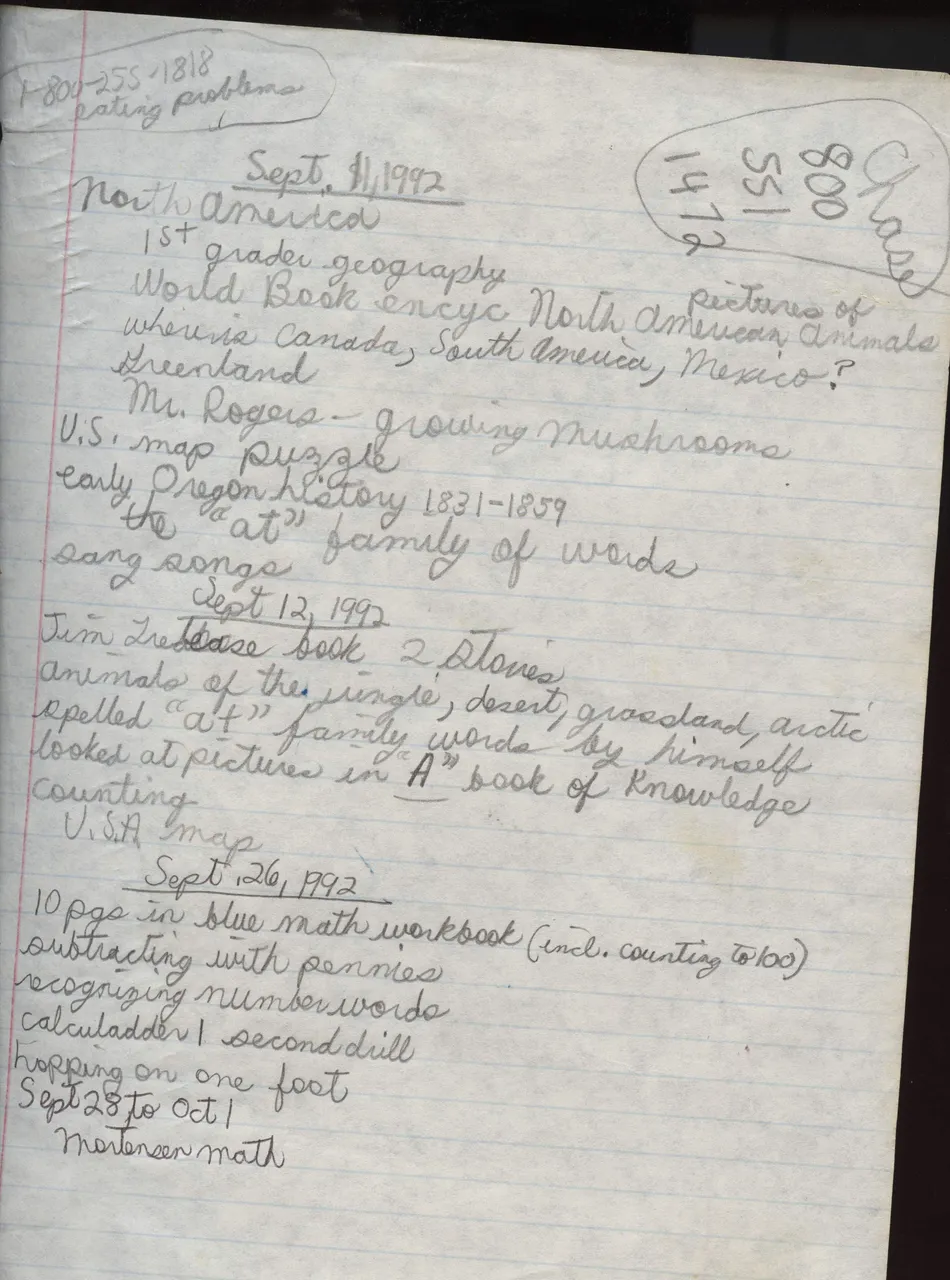 1-800-255-1818
eating problems
Chase
800
551
1472
Sept. 11, 1992
North America
1st grader geography
pictures of
World Book encyc North American Animals
where is Canada, South America, Mexico?
Greenland
Mr. Rogers - growing mushrooms
U.S. map puzzle
early Oregon history 1831-1859
the "at" family of words
sang songs
Sept 12, 1992
Jim Trelease book 2 Stories
animals of the jungle, desert, grassland, arctic
spelled "at" family words by himself
looked at pictures in "A" book of Knowledge
counting
U.S.A map
Sept. 26, 1992
10 pgs in blue math workbook (incl. counting to 100)
subtracting with pennies
recognizing number words
calculadder 1 second drill
hopping on one foot
Sept 28, to Oct 1
Mortensen math